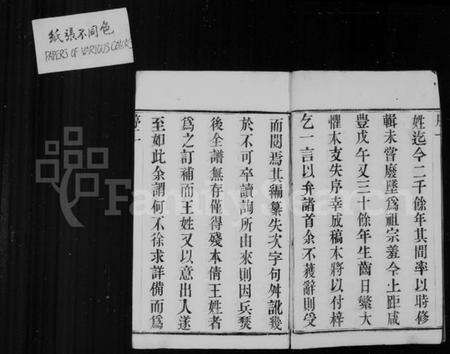 紙張不同色
PAPERS OF VARIOUS COLORS
姓迄今二千餘年其間率以時修
輯未嘗廢墜爲祖宗羞今上距咸
豐戊午又三十餘年生齒日蕃大
懼本支失序幸成稿本將以付梓
乞一言以弁諸首余不獲辭則受
而閱焉其編纂失次字句舛訛幾
於不可卒讀詢所由來則因兵燹
後全譜無存僅得殘本倩王姓者
爲之訂補而王姓又以意出入遂
至如此余謂何不徐求詳備而爲
序
FamilySearch